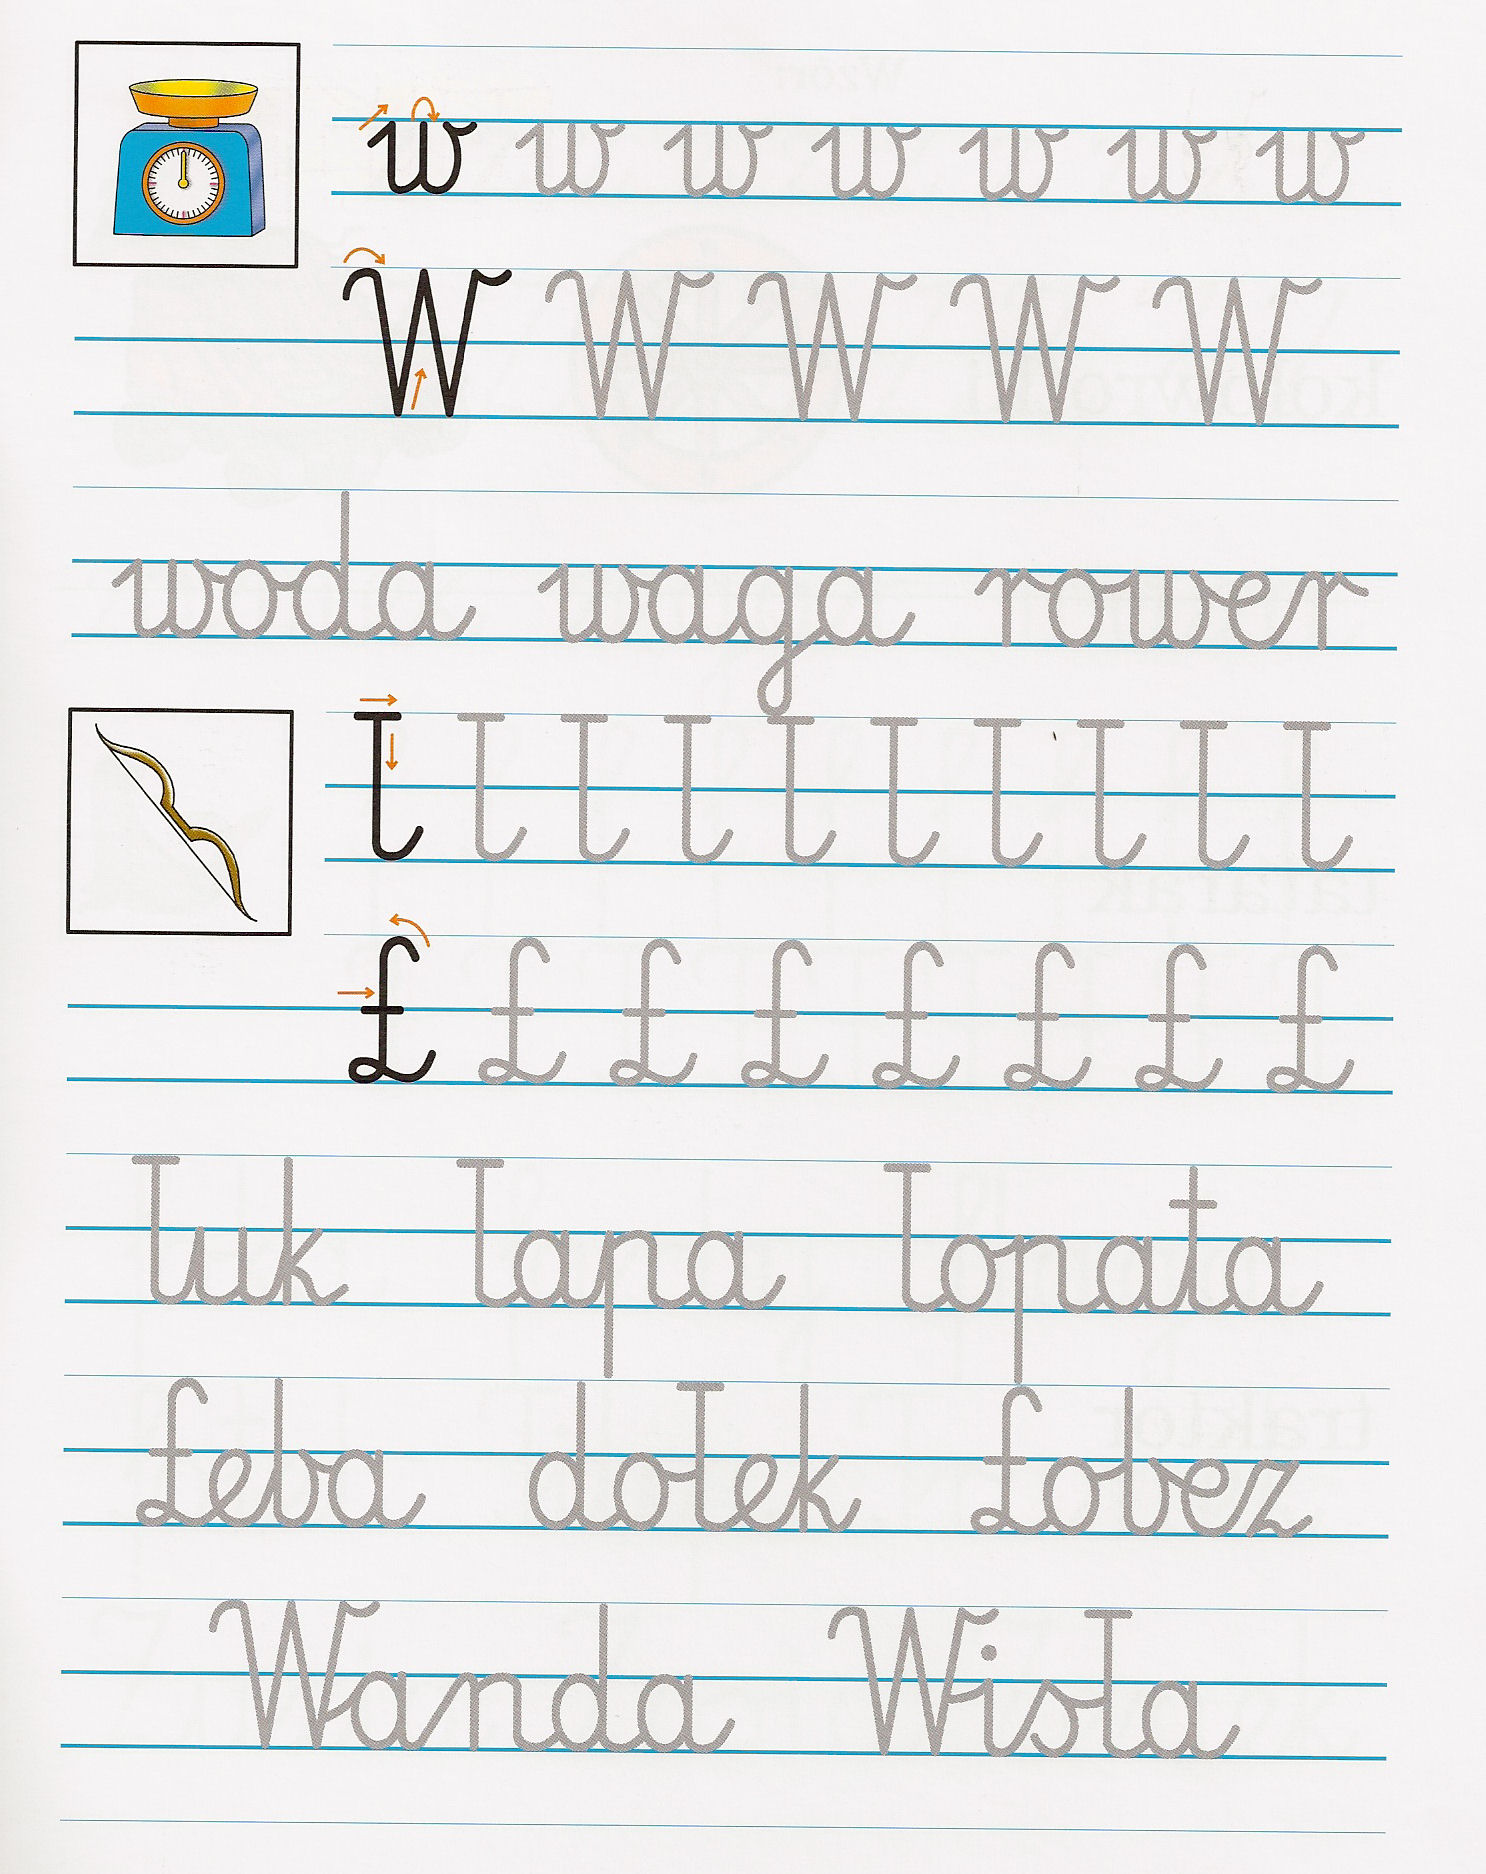 w w w w w w w
W W W W W
woda waga rower
ł ł ł ł ł ł ł ł ł ł
Ł Ł Ł Ł Ł Ł Ł Ł
łuk łapa łopata
Łeba dołek Łobez
Wanda Wisła